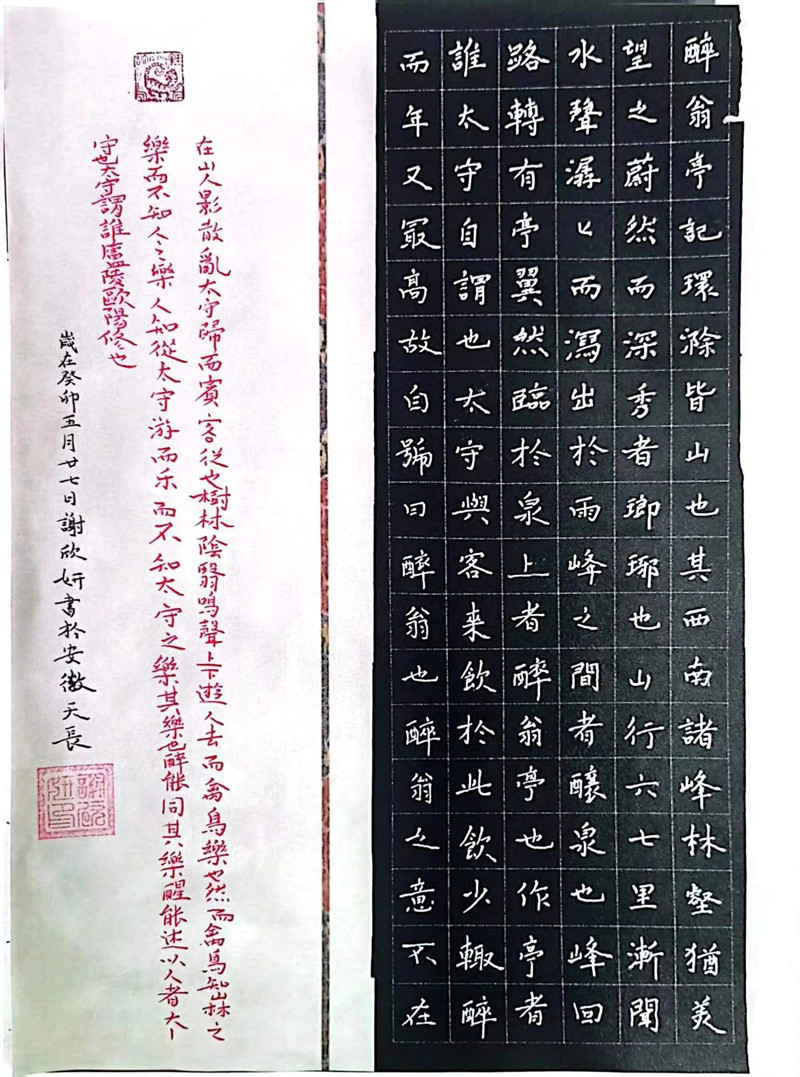 醉翁亭記環滁皆山也其西南諸峰林壑猶美
望之蔚然而深秀者瑯琊也山行六七里漸聞
水聲潺〻而瀉出於兩峰之間者釀泉也峰回
路轉有亭翼然臨於泉上者醉翁亭也作亭者
誰太守自謂也太守與客來飲於此飲少輒醉
而年又冣高故自號曰醉翁也醉翁之意不在
在山人影散亂太守歸而賓客從也樹林陰翳鳴聲上下遊人去而禽鳥樂也然而禽鳥知山林之
樂而不知人之樂人知從太守游而乐而不知太守之樂其樂也醉能同其樂醒能述以文者太
守也太守謂誰廬陵歐陽修也
歲在癸卯五月廿七日謝欣妍書於安徽天長